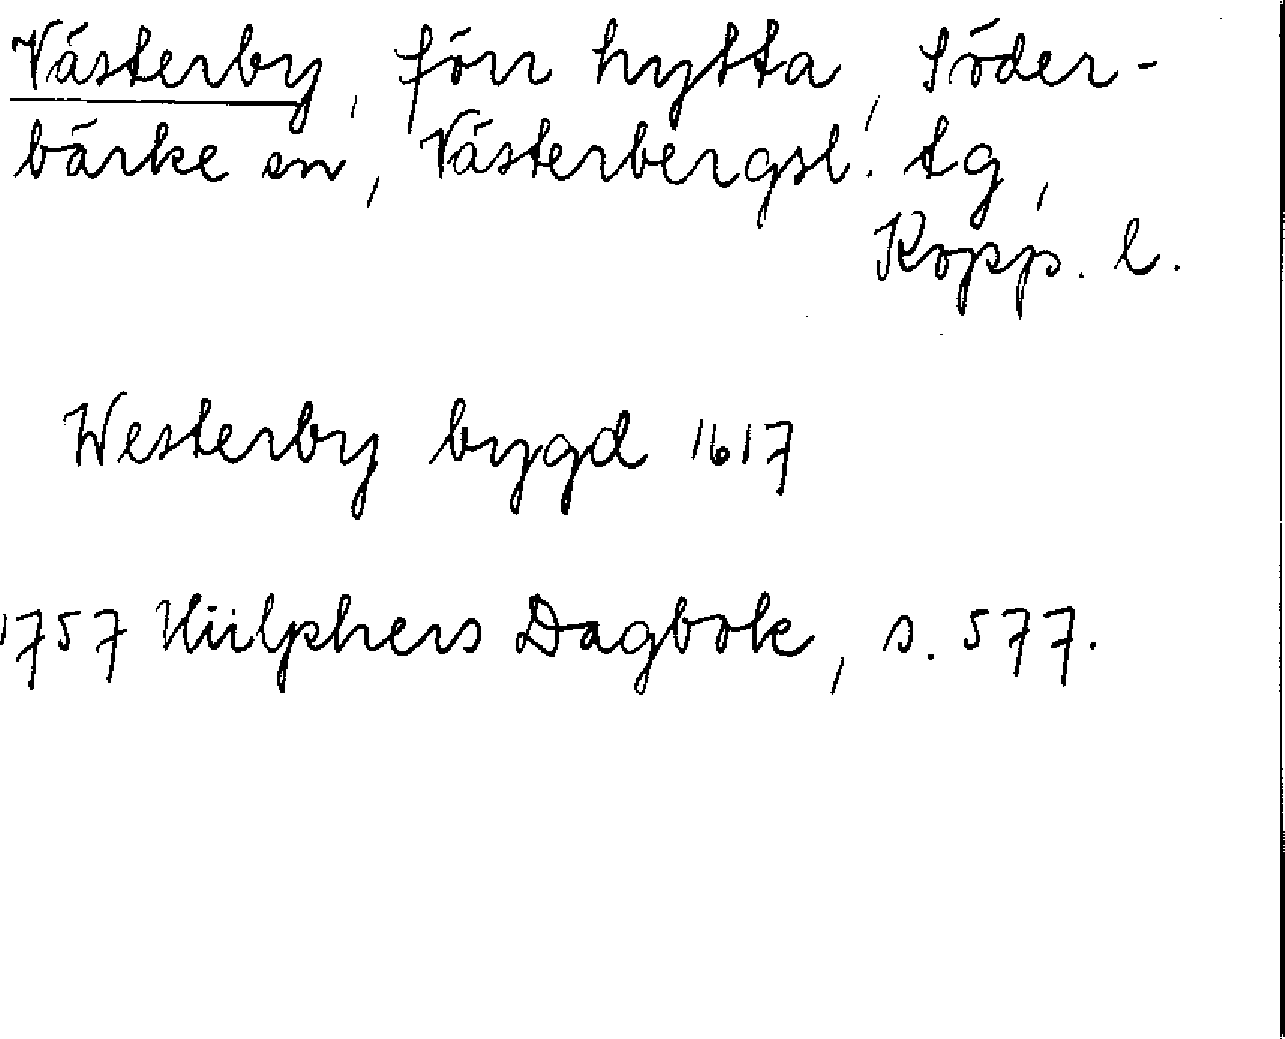 Västerby, förr hytta, Söder-
bärke sn, Västerbergsl. tg,
Kopp. l.
Westerby bygd 1617
1757 Hülphers Dagbok, s. 577.